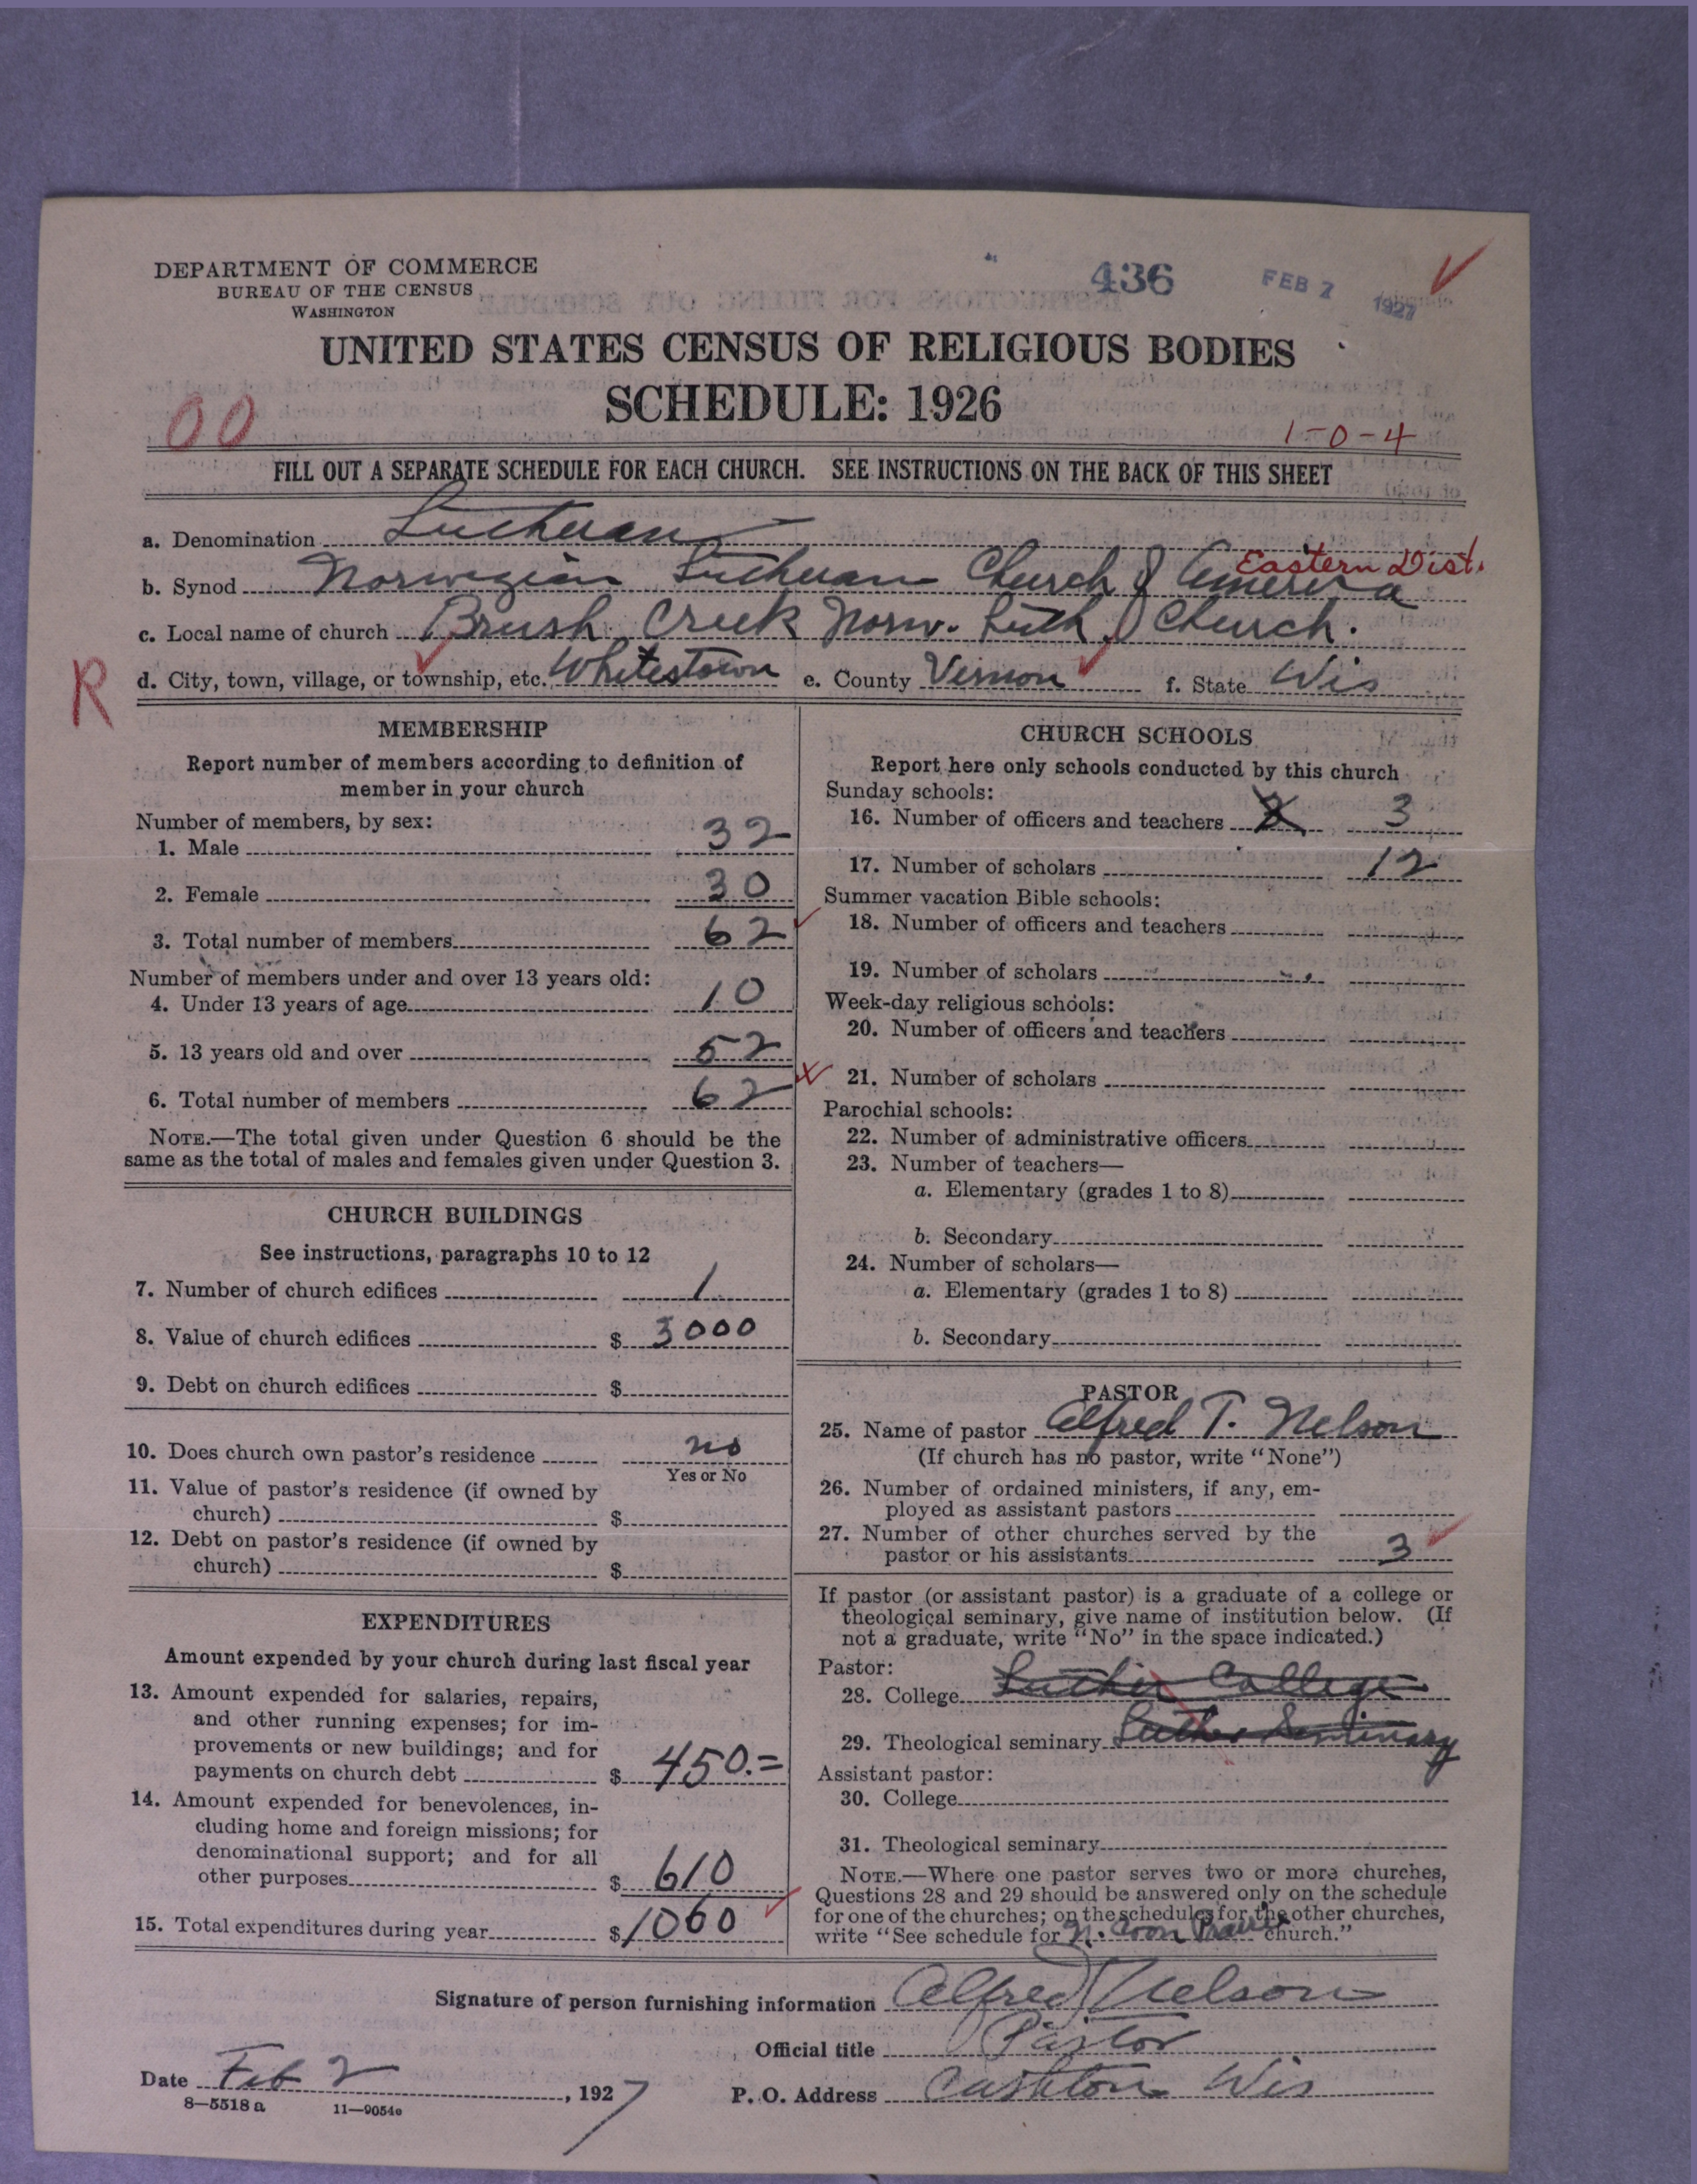 DEPARTMENT OF COMMERCE
BUREAU OF THE CENSUS
WASHINGTON
436
FEB 7 1927
UNITED STATES CENSUS OF RELIGIOUS BODIES
SCHEDULE: 1926
00
1-0-4
FILL OUT A SEPARATE SCHEDULE FOR EACH CHURCH. SEE INSTRUCTIONS ON THE BACK OF THIS SHEET
a. Denomination Lutheran
Eastern Dist.
b. Synod Norwegian Lutheran Church of America
c. Local name of church Brush Creek Norw. Luth Church.
R
d. City, town, village, or township, etc. Whitestown e. County Vernon f. State Wis
MEMBERSHIP
Report number of members according to definition of
member in your church
Number of members, by sex:
1. Male 32
2. Female 30
3. Total number of members 62
Number of members under and over 13 years old:
4. Under 13 years of age 10
5. 13 years old and over 52
6. Total number of members 62
NOTE.—The total given under Question 6 should be the
same as the total of males and females given under Question 3.
CHURCH BUILDINGS
See instructions, paragraphs 10 to 12
7. Number of church edifices 1
8. Value of church edifices $ 3000
9. Debt on church edifices $
10. Does church own pastor's residence no
Yes or No
11. Value of pastor's residence (if owned by
church) $
12. Debt on pastor's residence (if owned by
church) $
EXPENDITURES
Amount expended by your church during last fiscal year
13. Amount expended for salaries, repairs,
and other running expenses; for im-
provements or new buildings; and for
payments on church debt $ 450.=
14. Amount expended for benevolences, in-
cluding home and foreign missions; for
denominational support; and for all
other purposes $ 610
15. Total expenditures during year $ 1060
CHURCH SCHOOLS
Report here only schools conducted by this church
Sunday schools:
16. Number of officers and teachers 3
17. Number of scholars 12
Summer vacation Bible schools:
18. Number of officers and teachers
19. Number of scholars
Week-day religious schools:
20. Number of officers and teachers
21. Number of scholars
Parochial schools:
22. Number of administrative officers
23. Number of teachers—
a. Elementary (grades 1 to 8)
b. Secondary
24. Number of scholars—
a. Elementary (grades 1 to 8)
b. Secondary
PASTOR
25. Name of pastor Alfred T. Nelson
(If church has no pastor, write "None")
26. Number of ordained ministers, if any, em-
ployed as assistant pastors
27. Number of other churches served by the
pastor or his assistants 3
If pastor (or assistant pastor) is a graduate of a college or
theological seminary, give name of institution below. (If
not a graduate, write "No" in the space indicated.)
Pastor:
28. College Luther College
29. Theological seminary Luther Seminary
Assistant pastor:
30. College
31. Theological seminary
NOTE.—Where one pastor serves two or more churches,
Questions 28 and 29 should be answered only on the schedule
for one of the churches; on the schedules for the other churches,
write "See schedule for N. Coon Prairie church."
Signature of person furnishing information Alfred T Nelson
Official title Pastor
Date Feb 2, 1927
P. O. Address Cashton Wis
8—5518 a 11—9054a